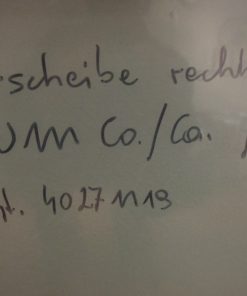 scheibe recht
UM Co./Ca.
t. 4027 1119